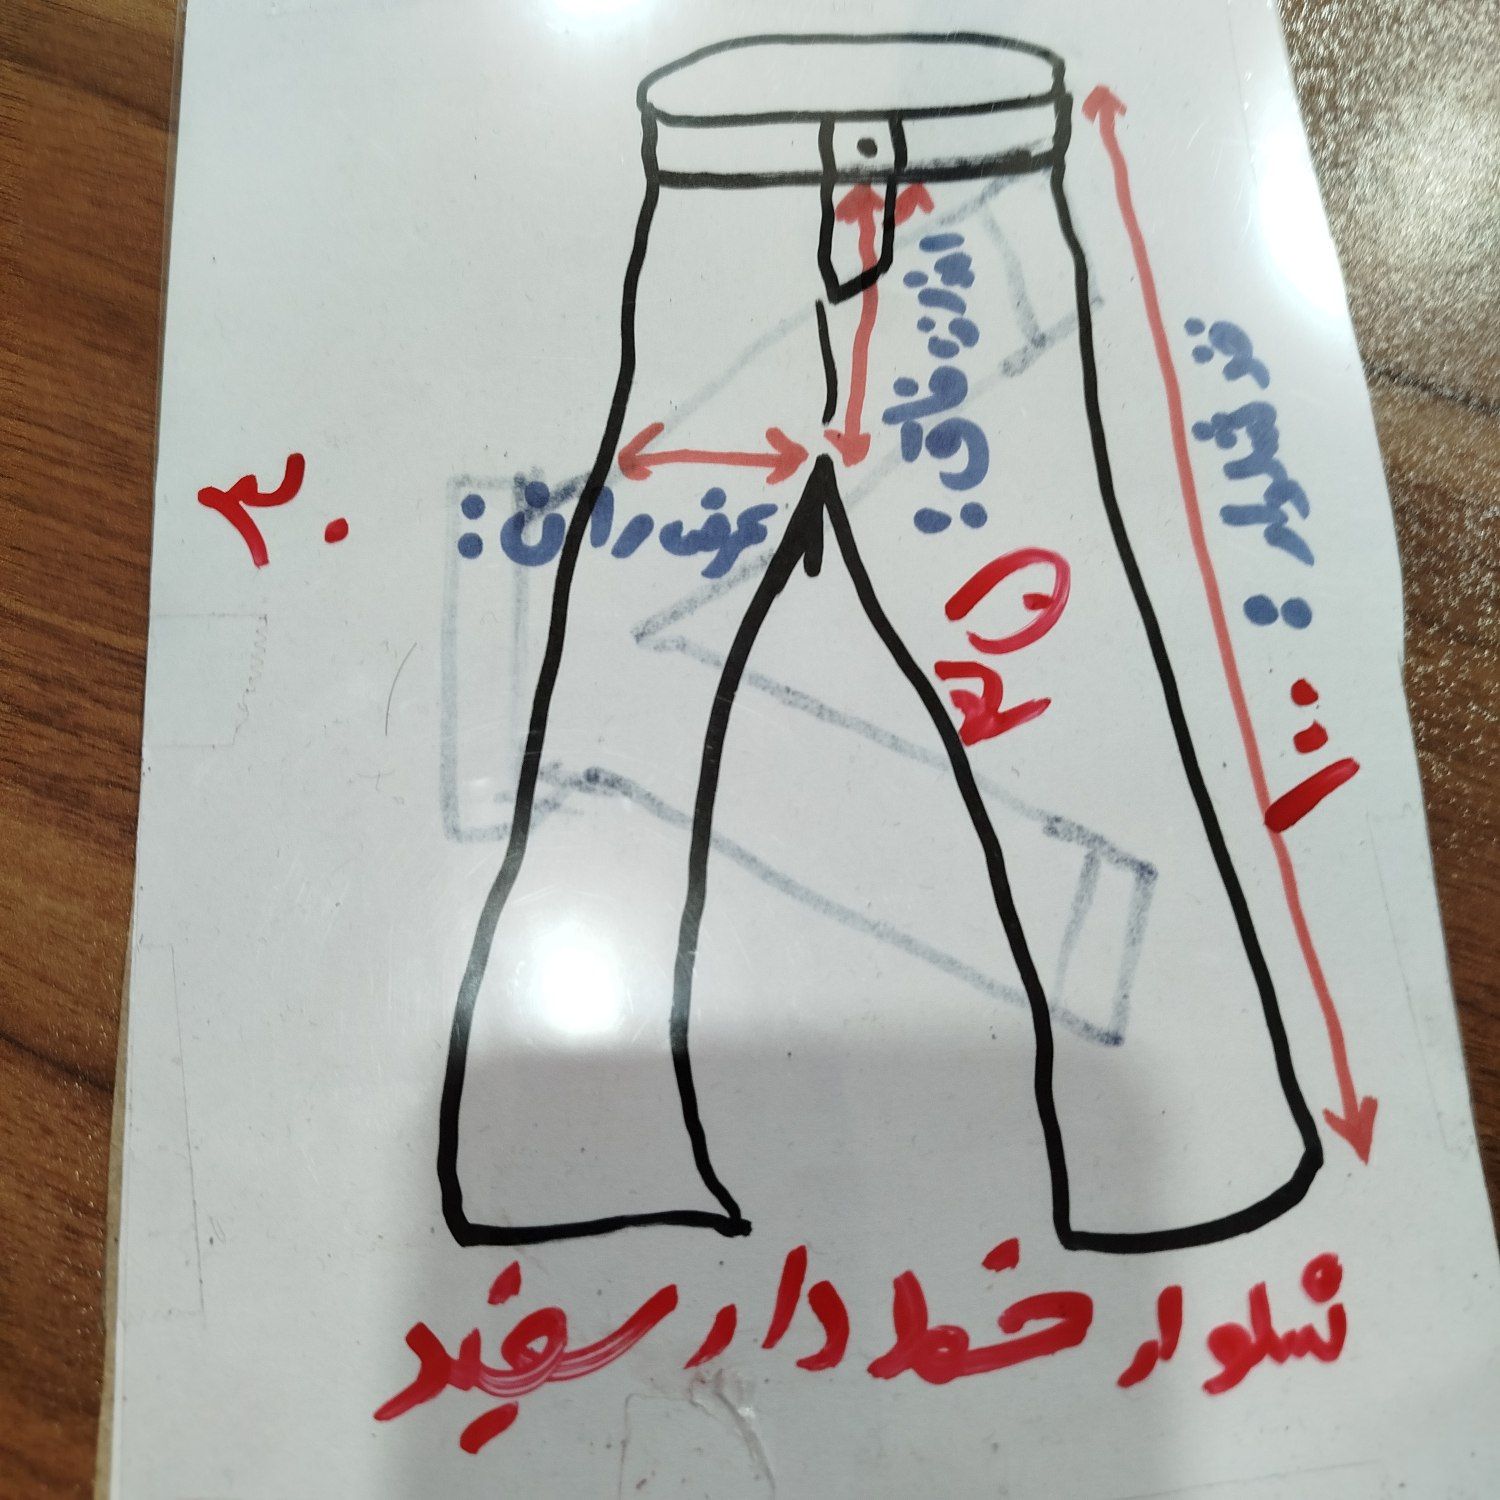 قد شلوار : ۱۰۰
اندازه فاق : ۳۵
عرض ران : ۳۰
شلوار خط دار سفید